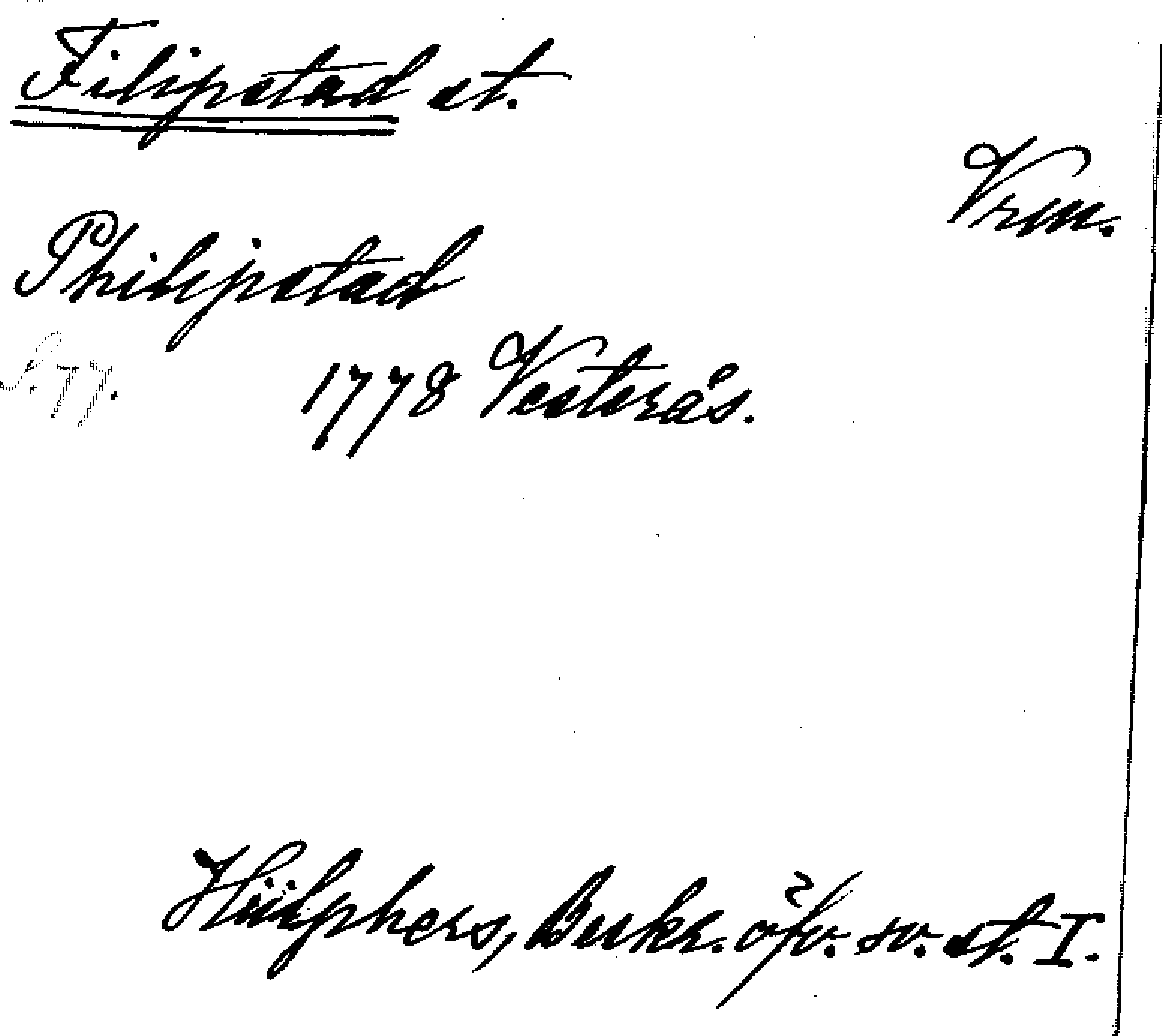 Filipstad st.
Vrm.
Philipstad
S. 77.
1778 Vesterås.
Hülphers, Beskr. öfv. sv. st. I.